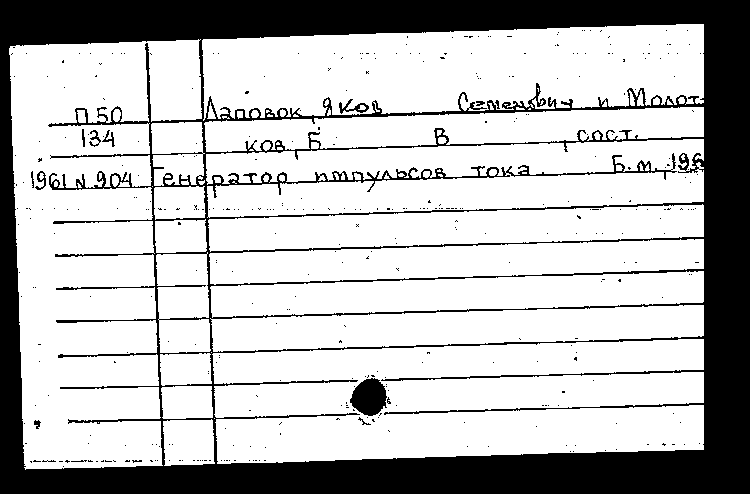 П50 Лаповок, Яков Семенович и Молот-
134 ков, Б В , сост.
1961 N 904 Генератор импульсов тока. Б.м.,